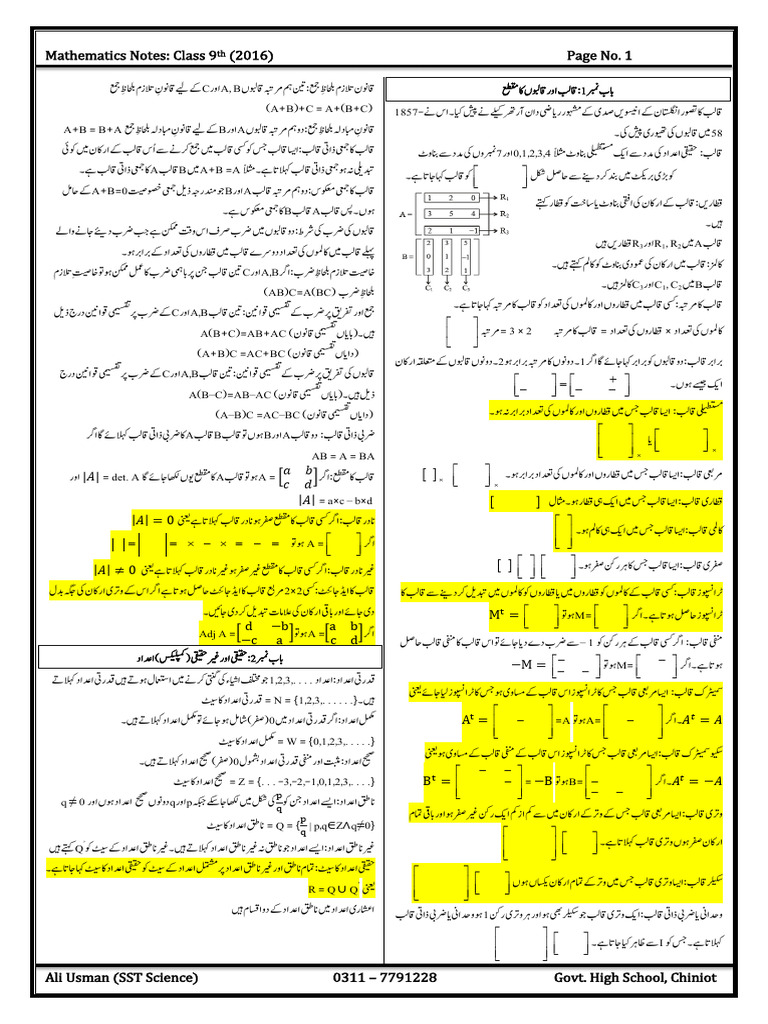 Mathematics Notes: Class 9th (2016) Page No. 1
باب نمبر1: قالب اور قالبوں کا مقطع
قالب کا تصور انگلستان کے انیسویں صدی کے مشہور ریاضی دان آرتھر کیلے نے پیش کیا۔ اس نے 1857-
58 میں قالبوں کی تھیوری پیش کی۔
قالب: حقیقی اعداد کی مدد سے ایک مستطیلی بناوٹ مثلاً 0,1,2,3,4 اور 7 نمبروں کی مدد سے بناوٹ
کو بڑی بریکٹ میں بند کر دینے سے حاصل شکل [ ] کو قالب کہا جاتا ہے۔
قطاریں: قالب کے ارکان کی افقی بناوٹ یا ساخت کو قطار کہتے
ہیں۔
A = 1 2 0 R1
3 5 4 R2
2 1 −1 R3
قالب A میں R1, R2 اور R3 قطاریں ہیں
کالمز: قالب میں ارکان کی عمودی بناوٹ کو کالم کہتے ہیں۔
B = 2 3 5
0 1 −1
3 2 1
C1 C2 C3
قالب B میں C1, C2 اور C3 کالمز ہیں۔
قالب کا مرتبہ: کسی قالب میں قطاروں اور کالموں کی تعداد کو قالب کا مرتبہ کہا جاتا ہے۔
کالموں کی تعداد × قطاروں کی تعداد = قالب کا مرتبہ 3 × 2 = مرتبہ [ ]
برابر قالب: دو قالبوں کو برابر کہا جائے گا اگر 1۔ دونوں کا مرتبہ برابر ہو 2۔ دونوں قالبوں کے متعلقہ ارکان
ایک جیسے ہوں۔ [ + − ] = [ − ]
مستطیلی قالب: ایسا قالب جس میں قطاروں اور کالموں کی تعداد برابر نہ ہو۔
[ ]× یا [ ]×
مربعی قالب: ایسا قالب جس میں قطاروں اور کالموں کی تعداد برابر ہو۔ [ ]× [ ]×
قطاری قالب: ایسا قالب جس میں ایک ہی قطار ہو۔ مثال [ ]
کالمی قالب: ایسا قالب جس میں ایک ہی کالم ہو۔ [ ]
صفری قالب: ایسا قالب جس کا ہر رکن صفر ہو۔ [ ] [ ] [ ]
ٹرانسپوز قالب: کسی قالب کے کالموں کو قطاروں میں یا قطاروں کو کالموں میں تبدیل کر دینے سے قالب کا
ٹرانسپوز حاصل ہوتا ہے۔ اگر M=[ ] ہو تو Mt = [ ]
منفی قالب: اگر کسی قالب کے ہر رکن کو 1− سے ضرب دے دیا جائے تو اس کا منفی قالب حاصل
ہوتا ہے۔ اگر M=[ − ] ہو تو −M = [ − − − ]
سمیٹرک قالب: ایسا مربعی قالب جس کا ٹرانسپوز اس قالب کے مساوی ہو جس کا ٹرانسپوز لیا جائے یعنی
At = A۔ اگر A=[ − ] ہو تو At = [ − ] =A
سکیو سمیٹرک قالب: ایسا مربعی قالب جس کا ٹرانسپوز اس قالب کے منفی قالب کے مساوی ہو یعنی
At = −A۔ اگر B=[ − − − ] ہو تو Bt = [ − − − ] = −B
وتری قالب: ایسا مربعی قالب جس کے وتر کے ارکان میں سے کم از کم ایک رکن غیر صفر ہو اور باقی تمام
ارکان صفر ہوں وتری قالب کہلاتا ہے۔ [ ] [ ]
سکیلر قالب: ایسا وتری قالب جس میں وتر کے تمام ارکان یکساں ہوں [ ] [ ]
وحدانی یا ضربی ذاتی قالب: ایک وتری قالب جو سکیلر بھی ہو اور ہر وتری رکن 1 ہو وحدانی یا ضربی ذاتی قالب
کہلاتا ہے۔ جس کو I سے ظاہر کیا جاتا ہے۔ [ ] [ ]
قانون تلازم بلحاظ جمع: تین ہم مرتبہ قالبوں A, B اور C کے لیے قانون تلازم بلحاظ جمع
(A+B)+C = A+(B+C)
قانون مبادلہ بلحاظ جمع: دو ہم مرتبہ قالبوں A اور B کے لیے قانون مبادلہ بلحاظ جمع A+B = B+A
قالب کا جمعی ذاتی قالب: ایسا قالب جس کو کسی قالب میں جمع کرنے سے اُس قالب کے ارکان میں کوئی
تبدیلی نہ ہو جمعی ذاتی قالب کہلاتا ہے۔ مثلاً A+B =A میں B قالب A کا جمعی ذاتی قالب ہے۔
قالب کا جمعی معکوس: دو ہم مرتبہ قالب A اور B جو مندرجہ ذیل جمعی خصوصیت A+B=0 کے حامل
ہوں۔ پس قالب A قالب B کا جمعی معکوس ہے۔
قالبوں کی ضرب کی شرط: دو قالبوں میں ضرب صرف اس وقت ممکن ہے جب ضرب دیئے جانے والے
پہلے قالب میں کالموں کی تعداد دوسرے قالب میں قطاروں کی تعداد کے برابر ہو۔
خاصیت تلازم بلحاظ ضرب: اگر A,B اور C تین قالب جن پر باہمی ضرب کا عمل ممکن ہو تو خاصیت تلازم
بلحاظ ضرب (AB)C=A(BC)
جمع اور تفریق پر ضرب کے تقسیمی قوانین: تین قالب A,B اور C کے ضرب پر تقسیمی قوانین درج ذیل
ہیں۔ (بایاں تقسیمی قانون) A(B+C)=AB+AC
(دایاں تقسیمی قانون) (A+B)C =AC+BC
قالبوں کی تفریق پر ضرب کے تقسیمی قوانین: تین قالب A,B اور C کے ضرب پر تقسیمی قوانین درج
ذیل ہیں۔ (بایاں تقسیمی قانون) A(B−C)=AB−AC
(دایاں تقسیمی قانون) (A–B)C =AC–BC
ضربی ذاتی قالب: دو قالب A اور B ہوں تو قالب B قالب A کا ضربی ذاتی قالب کہلائے گا اگر
AB = A = BA
قالب کا مقطع: اگر A = [a b c d] ہو تو قالب A کا مقطع یوں لکھا جائے گا |A| = det. A اور
|A| = a×c – b×d
نادر قالب: اگر کسی قالب کا مقطع صفر ہو نادر قالب کہلاتا ہے یعنی |A| = 0
اگر A = [ ] ہو تو | | = | | = × − × = − =
غیر نادر قالب: اگر کسی قالب کا مقطع غیر صفر ہو غیر نادر قالب کہلاتا ہے یعنی |A| ≠ 0
قالب کا ایڈجائنٹ: کسی 2×2 مربع قالب کا ایڈجائنٹ حاصل ہوتا ہے اگر اس کے وتری ارکان کی جگہ بدل
دی جائے اور باقی ارکان کی علامات تبدیل کر دی جائیں۔
اگر A = [a b c d] ہو تو Adj A = [d −b −c a]
باب نمبر2: حقیقی اور غیر حقیقی (کمپلیکس) اعداد
قدرتی اعداد: اعداد 1,2,3,. . . . جو مختلف اشیاء کی گنتی کرنے میں استعمال ہوتے ہیں قدرتی اعداد کہلاتے
ہیں۔ N = {1,2,3,. . . . . .} = قدرتی اعداد کا سیٹ
مکمل اعداد: اگر قدرتی اعداد میں 0 (صفر) شامل ہو جائے تو مکمل اعداد کہلاتے ہیں۔
W = {0,1,2,3,. . . . .} = مکمل اعداد کا سیٹ
صحیح اعداد: مثبت اور منفی قدرتی اعداد بشمول 0 (صفر) صحیح اعداد کہلاتے ہیں۔
Z = {. . . −3,−2,−1,0,1,2,3,. . . .} = صحیح اعداد کا سیٹ
ناطق اعداد: ایسے اعداد جن کو p/q کی شکل میں لکھا جا سکے جبکہ p اور q دونوں صحیح اعداد ہوں اور q ≠ 0
Q = {p/q | p,q∈Z∧q≠0} = ناطق اعداد کا سیٹ
غیر ناطق اعداد: ایسے اعداد جو ناطق نہ غیر ناطق اعداد کہلاتے ہیں۔ غیر ناطق اعداد کے سیٹ کو Q کہتے ہیں
حقیقی اعداد کا سیٹ: تمام ناطق اور غیر ناطق اعداد پر مشتمل اعداد کے سیٹ کو حقیقی اعداد کا سیٹ کہا جاتا ہے۔
یعنی R = Q ∪ Q
اعشاری اعداد میں ناطق اعداد کے دو اقسام ہیں
Ali Usman (SST Science) 0311 – 7791228 Govt. High School, Chiniot